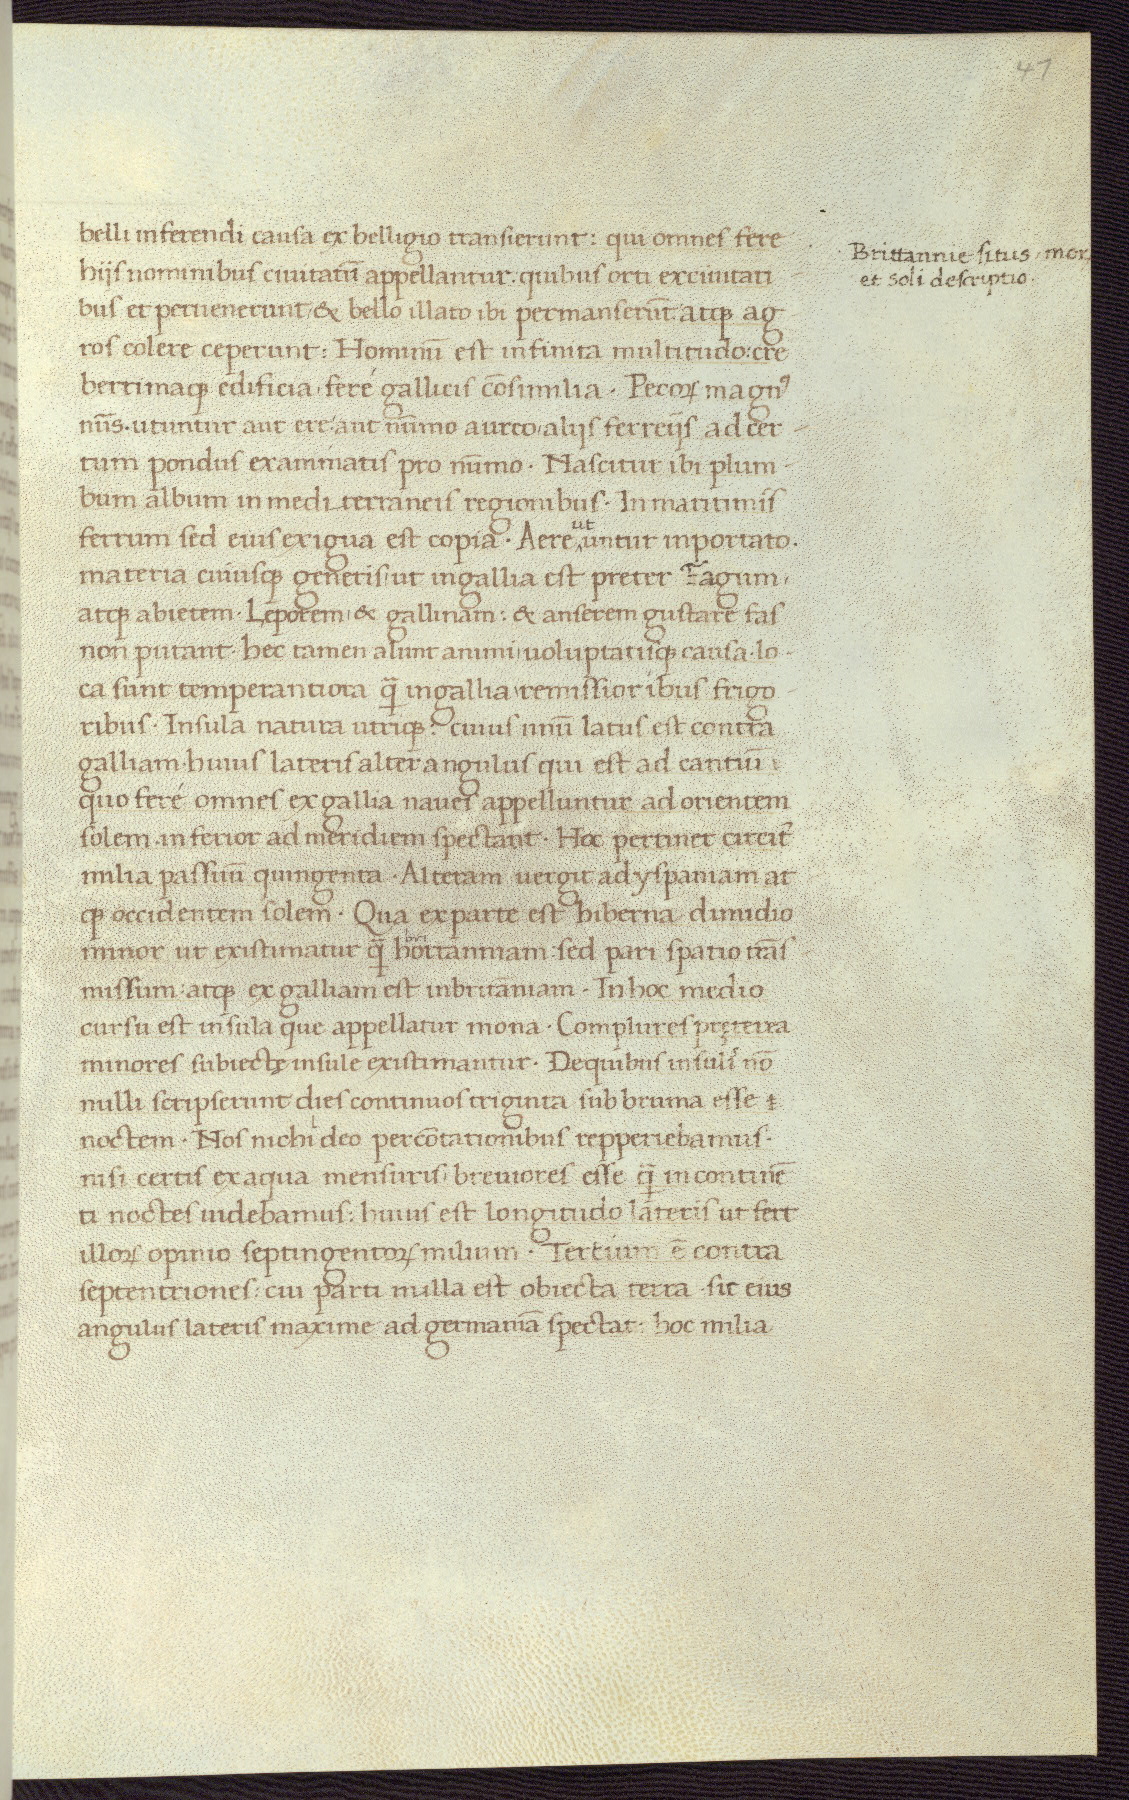 47
belli inferendi causa ex belligio transierunt: qui omnes fere
hijs nominibus ciuitatũ appellantur. quibus orti exciuitati
bus et peruenerunt, & bello illato ibi permanserũt. atqꝫ ag
ros colere ceperunt: Hominũ est infinita multitudo: cre
berrimaqꝫ edificia, feré gallicis cõsimilia. Pecorꝝ magnꝰ
nũs. utuntur aut ere: aut nũmo aureo, alijs ferreijs ad cer
tum pondus examinatis pro nũmo. Nascitur ibi plum
bum album in medi terraneis regionibus. In maritimis
ferrum sed eius exigua est copia. Aere ut untur inportato.
materia cuiusqꝫ generis, ut ingallia est preter Fagum,
atqꝫ abietem. Leporem, & gallinam: & anserem gustare fas
non putant. hec tamen alunt animi, uoluptatisqꝫ causa. lo
ca sunt temperantiora q̃ ingallia, remissior ibus frigo
ribus. Insula natura utriqꝫ: cuius unũ latus est contra
galliam. huius lateris alter angulus qui est ad cantiũ
quo feré omnes ex gallia naues appelluntur ad orientem
solem. inferior ad meridiem spectant. Hoc pertinet circit̃
milia passuũ quingenta. Alteram uergit ad yspaniam at
qꝫ occidentem solem. Qua ex parte est hiberna dimidio
minor ut existimatur q̃ bri hottanniam: sed pari spatio trãs
missum: atqꝫ ex galliam est inbritãniam. In hoc medio
cursu est insula que appellatur mona. Complures pręterea
minores subiectę insule existimantur. De quibus insul̃ nõ
nulli scripserunt dies continuos triginta sub bruma esse
noctem. Nos nichil deo percõtationibus repperiebamus.
nisi certis ex aqua mensuris, breuiores esse q̃ in continẽ
ti noctes uidebamus: huius est longitudo lateris ut fert
illorꝝ opinio septingentorꝝ milium. Tertium ẽ contra
septentriones: cui parti nulla est obiecta terra. sit eius
angulus lateris maxime ad germaniã spectat: hoc milia
Brittannie situs, mor
et soli descriptio.